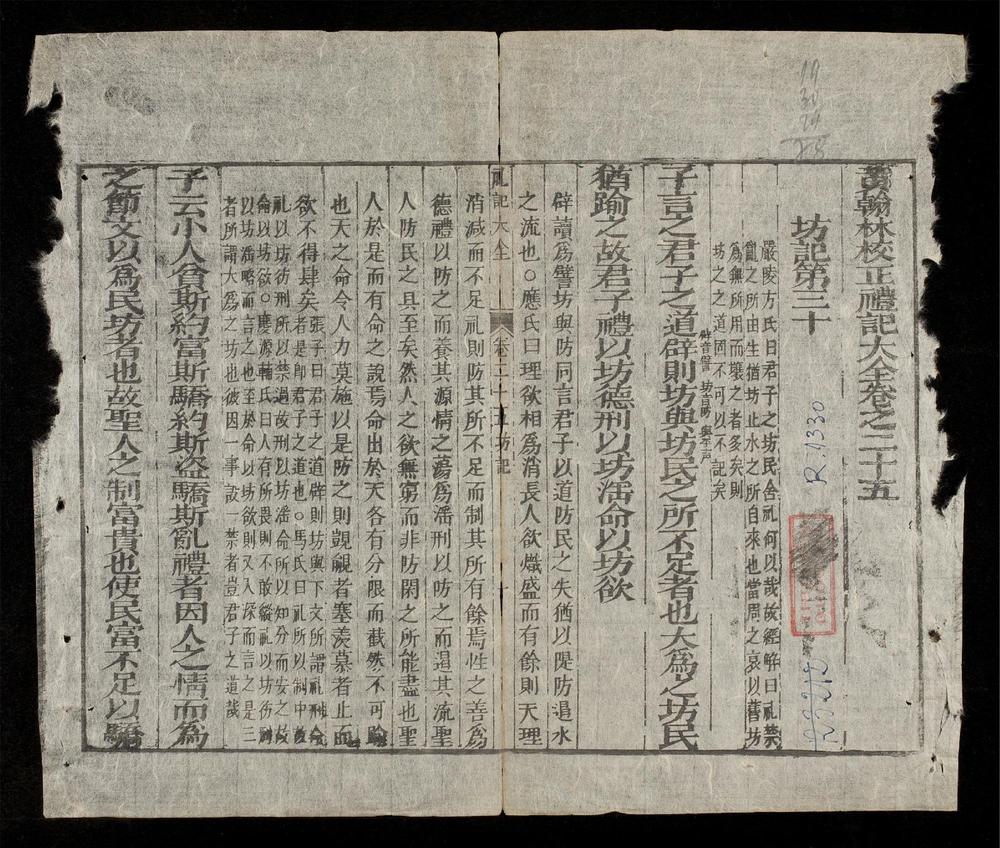 黃翰林校正禮記大全卷之二十五
坊記第三十
嚴陵方氏曰君子之坊民舍礼何以哉故經解曰礼禁
亂之所由生猶坊止水之所自來也當周之衰以舊坊
爲無所用而壞之者多矣則
坊之之道固不可以不記矣
子言之君子之道辟則坊與坊民之所不足者也大爲之坊民
辟音譬 坊音防 與平声
猶踰之故君子禮以坊德刑以坊淫命以坊欲
辟讀爲譬坊與防同言君子以道防民之失猶以隄防遏水
之流也○應氏曰理欲相爲消長人欲熾盛而有餘則天理
礼記大全 卷二十五坊記 一
消減而不足礼則防其所不足而制其所有餘焉性之善爲
德禮以防之而養其源情之蕩爲淫刑以防之而遏其流聖
人防民之具至矣然人之欲無窮而非防閑之所能盡也聖
人於是而有命之說焉命出於天各有分限而截然不可踰
也天之命令人力莫施以是防之則覬覦者塞羨慕者止而
欲不得肆矣
張子曰君子之道辟則坊與下文所謂礼刑命
者是即君子之道也○馬氏曰礼所以制中故
礼以坊德刑所以禁過故刑以坊淫命所以知分而安之故
命以坊欲○慶源輔氏曰人有所畏則不敢縱礼以坊德刑
以坊淫略而言之也至於命以坊欲則又入深而言之是三
者所謂大爲之坊也彼因一事設一禁者豈君子之道哉
子云小人貧斯約富斯驕約斯盜驕斯亂禮者因人之情而爲
之節文以爲民坊者也故聖人之制富貴也使民富不足以驕
R 11330